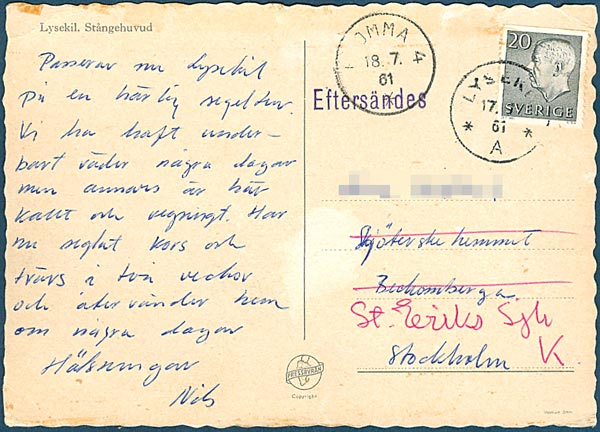 Lysekil. Stångehuvud
Passerar nu Lysekil
På en härlig segeltur.
Vi ha haft under-
bart väder några dagar
men annars är här
kallt och regnigt. Har
nu seglat kors och
tvärs i två veckor
och återvänder hem
om några dagar
Hälsningar
Nils
OMMA 4
18.7.
61
Eftersändes
20
SVERIGE
LYSEK
17.
61
* A *
Sköterskehemmet
Beckomberga.
St. Eriks Sjh
K
Stockholm
PRESSBYRÅN
Copyright